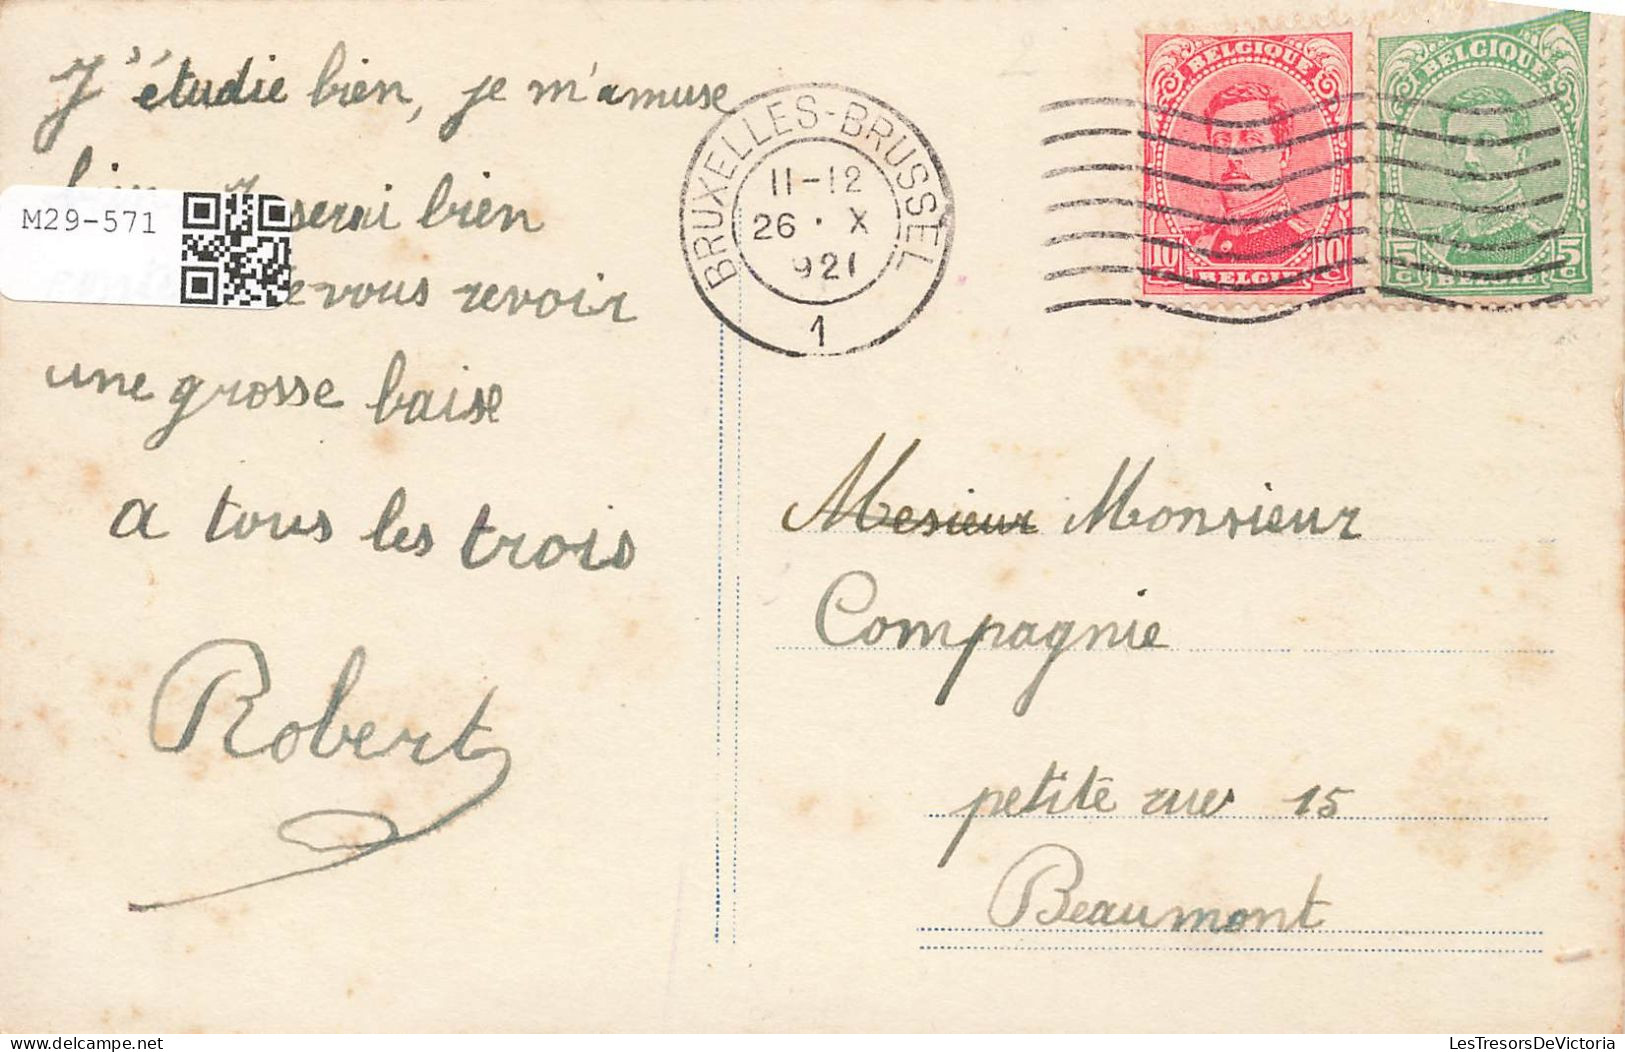 J'étudie bien, je m'amuse
serai bien
vous revoir
une grosse baise
a tous les trois
Robert
M29-571
BRUXELLES-BRUSSEL
11-12
26 · X
921
1
BELGIQUE
10 10
BELGIË
BELGIQUE
5 5
BELGIË
Mesieur Monsieur
Compagnie
petite rue 15
Beaumont
www.delcampe.net
LesTresorsDeVictoria